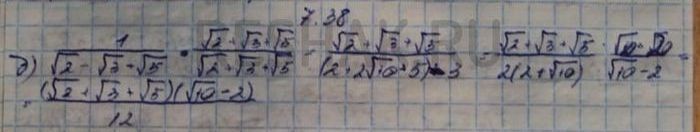 7.38
д) 1/(√2 - √3 + √5) · (√2 + √3 + √5)/(√2 + √3 + √5) = (√2 + √3 + √5)/((2 + 2√10 + 5) - 3) = (√2 + √3 + √5)/(2(2 + √10)) · /(√10 - 2) =
= (√2 + √3 + √5)(√10 - 2)/12